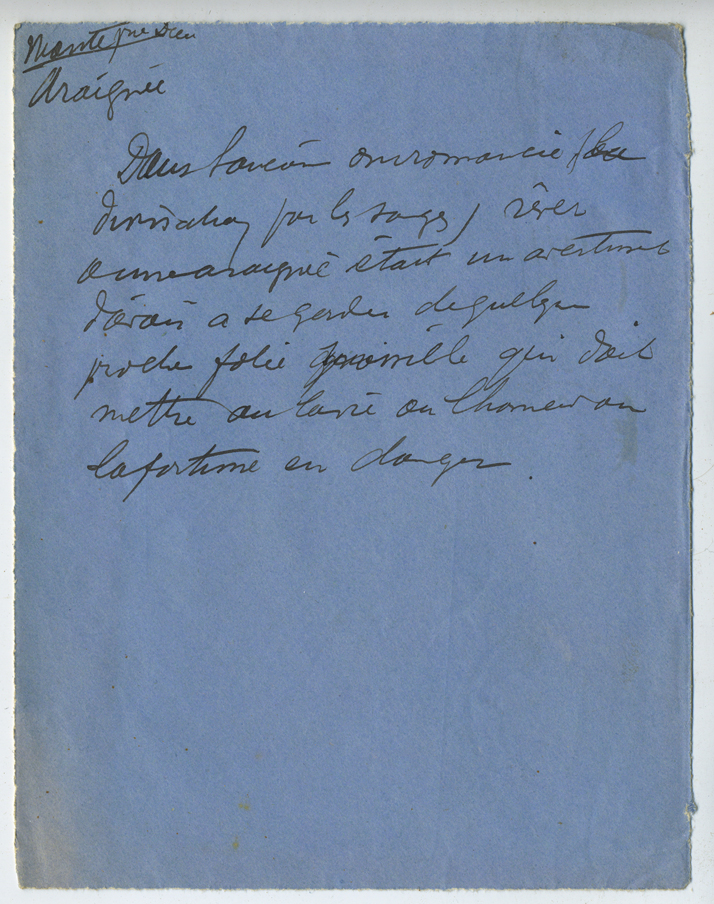 Mante prie Dieu
Araignée
Dans l'ancien oniromancie (la
divination par les songes) rêver
a une araignée était un avertissmt
d'avoir a se garder de quelque
proche folie qui doit
mettre ou la vie ou l'honneur ou
la fortune en danger.